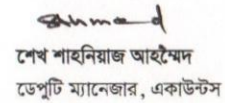 Ahmed
শেখ শাহনিয়াজ আহম্মেদ
ডেপুটি ম্যানেজার, একাউন্টস